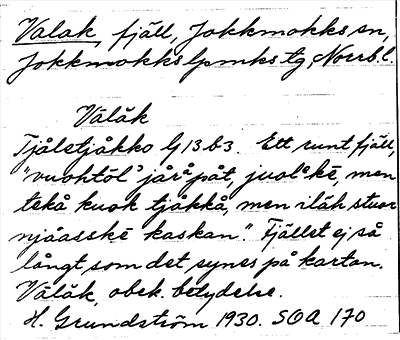 Valak, fjäll, Jokkmokks sn,
Jokkmokks lpmks tg, Norrb.l.
Välåk
Tjålstjåkko lj 13 b 3. Ett runt fjäll,
"vuohtōl' jårå påt, juolåkē, men
tekå kuok tjåkkå, men iläh stuor
njåasskē kaskan." Fjället ej så
långt, som det synes på kartan.
Välåk, obek. betydelse.
H. Grundström 1930. SOA 170